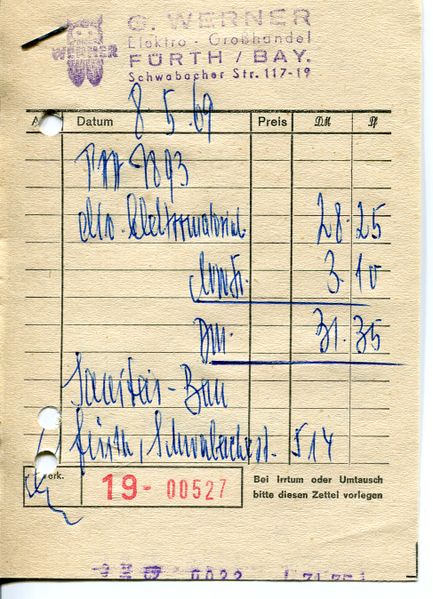 WERNER
G. WERNER
Elektro - Großhandel
FÜRTH / BAY.
Schwabacher Str. 117-19
Datum 8.5.69 Preis DM Pf
1893
div. Elektromaterial 28.25
Mwst. 3.10
DM. 31.35
Sanitär-Bau
Fürth, Schwabacherst. 514
Verk.
19-00527
Bei Irrtum oder Umtausch
bitte diesen Zettel vorlegen